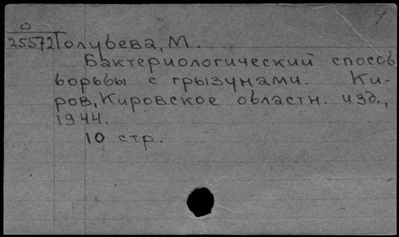 О
25572 Голубева, М.
Бактериологический способ
борьбы с грызунами. Ки-
ров, Кировское областн. изд.,
1944.
10 стр.